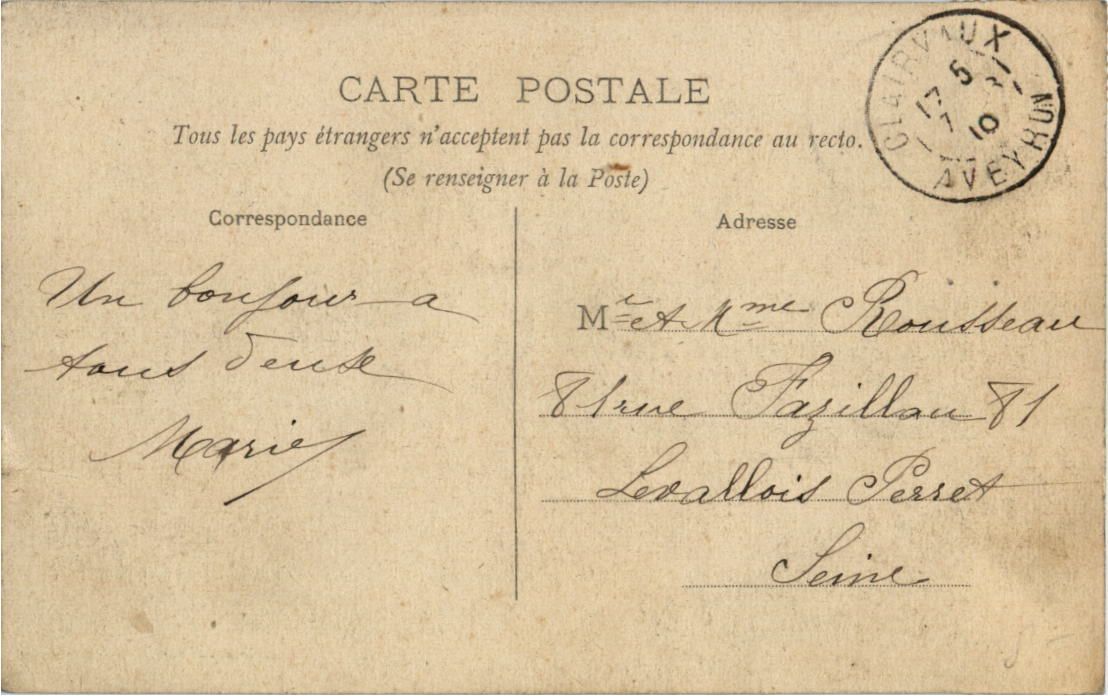 CARTE POSTALE
Tous les pays étrangers n'acceptent pas la correspondance au recto.
(Se renseigner à la Poste)
CLAIRVAUX
17 5
7 10
AVEYRON
Correspondance
Un bonjour a
tous deux
Marie
Adresse
Mr et Mme Rousseau
81 rue Fazillau 81
Levallois Perret
Seine